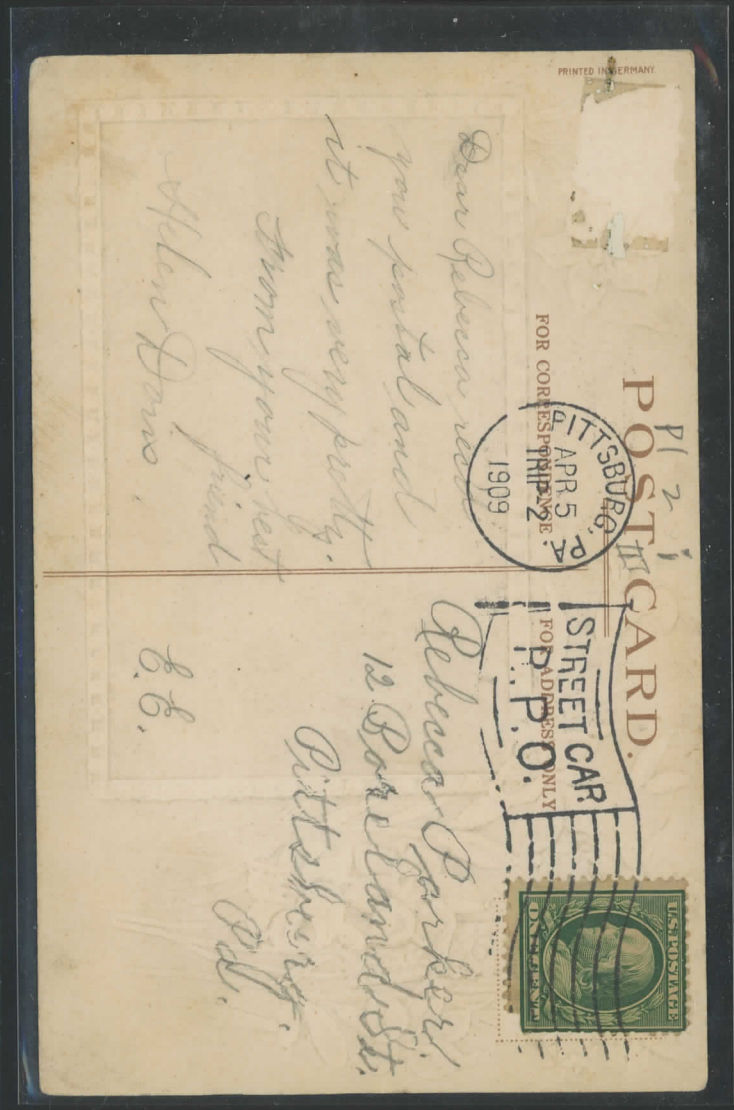 PRINTED IN GERMANY
POST CARD.
FOR CORRESPONDENCE
FOR ADDRESS ONLY
P1
2
PITTSBURG, PA.
APR 5
TRIP 2
1909
STREET CAR
R.P.O.
U.S. POSTAGE
ONE CENT
Dear Rebecca recd
your postal and
it was very pretty.
From your best
friend
Helen Davis.
Rebecca Parker
12 Boreland St.
Pittsburg.
Pa.
E.E.